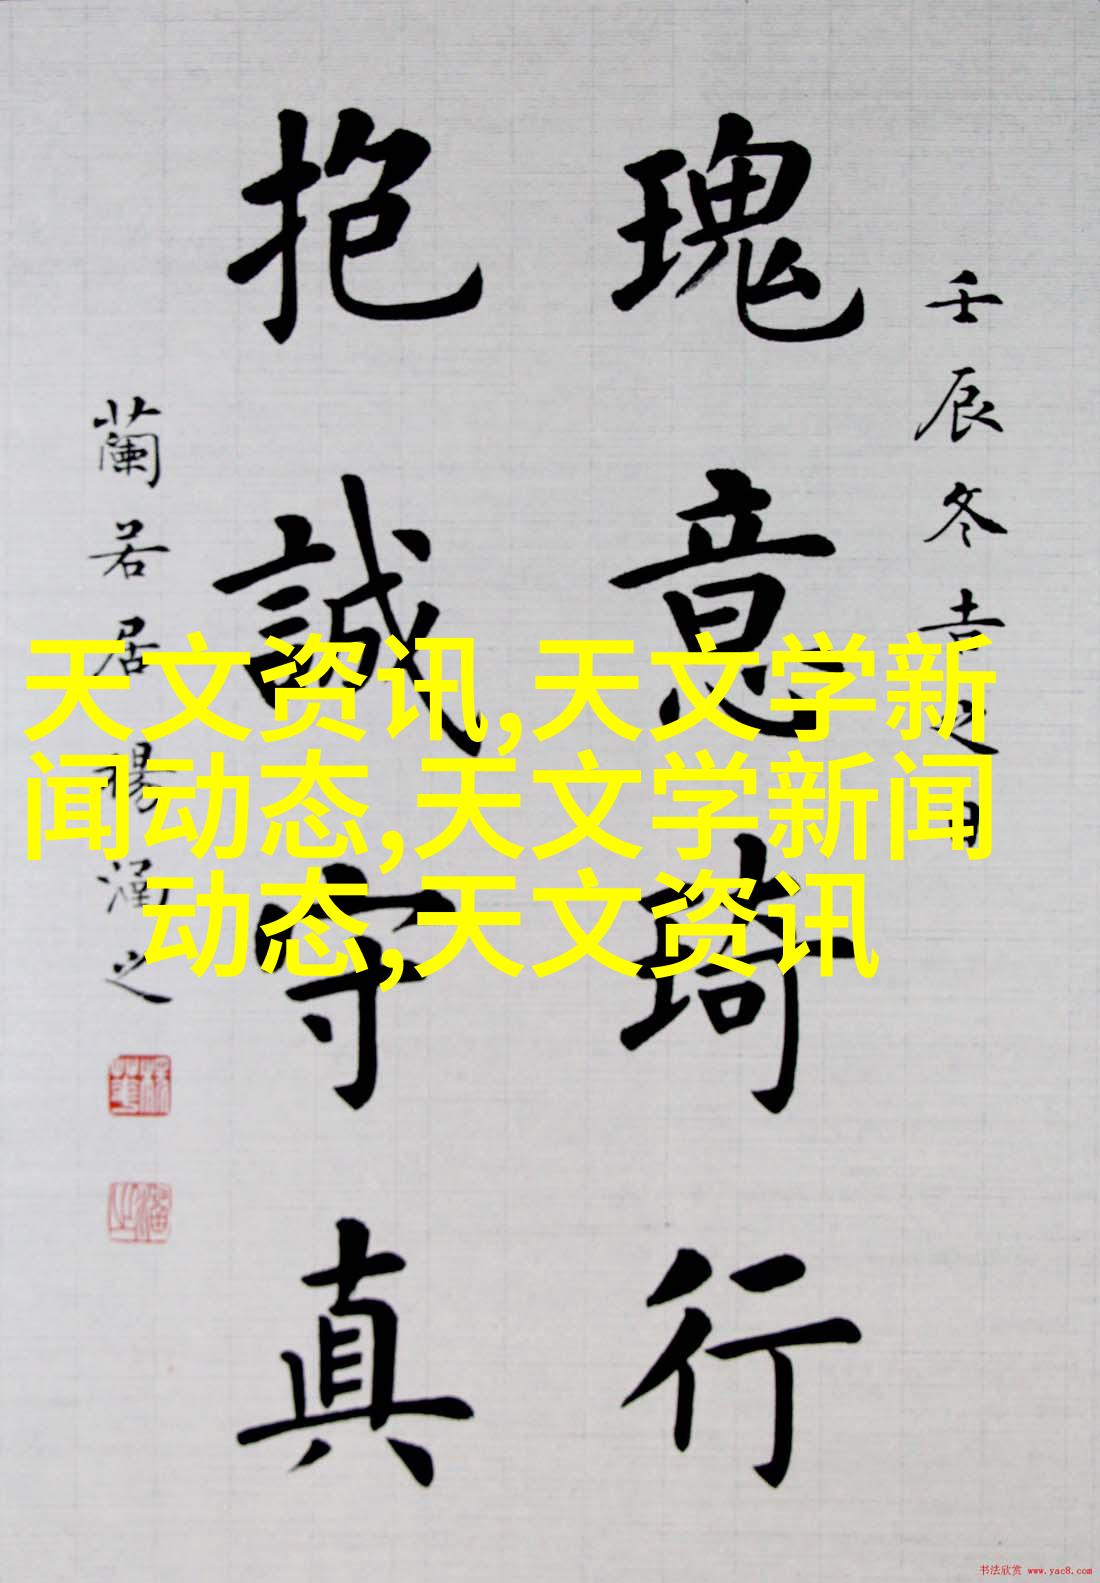 壬辰冬吉之日
瑰意琦行
抱誠守真
蘭若居楊潘之
天文资讯,天文学新
闻动态,天文学新闻
动态,天文资讯
书法欣赏 www.yac8.com